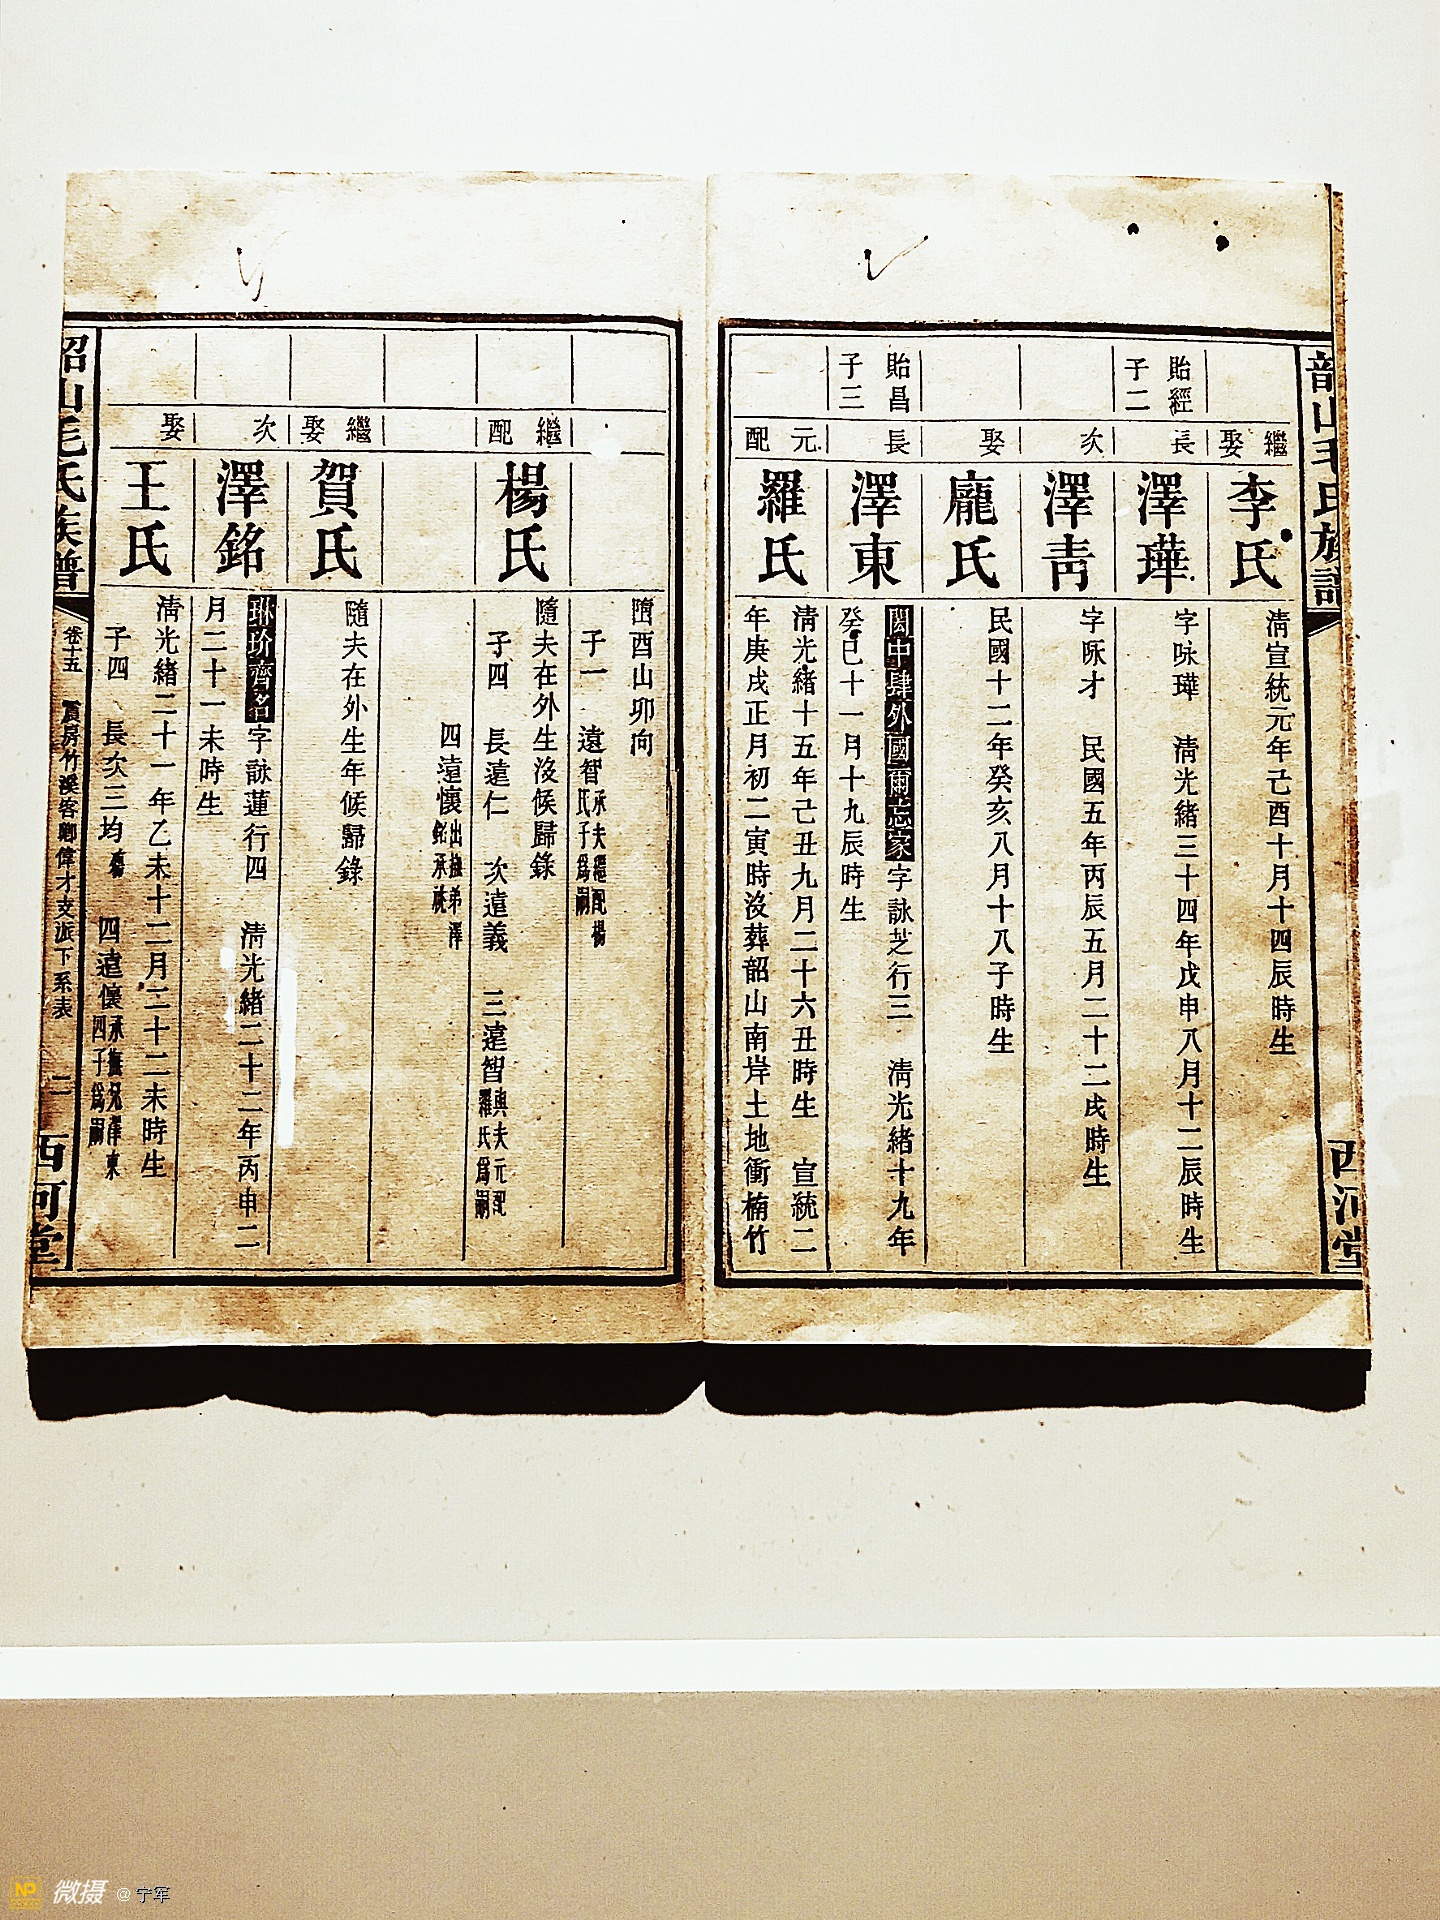 韶山毛氏族譜
西河堂
繼娶
李氏
清宣統元年己酉十月十四辰時生
貽經子二
長
澤璍
字咏璍 清光緒三十四年戊申八月十二辰時生
次
澤靑
字咏才 民國五年丙辰五月二十二戌時生
娶
龐氏
民國十二年癸亥八月十八子時生
貽昌子三
長
澤東
閎中肆外國爾忘家字詠芝行三 清光緒十九年
癸巳十一月十九辰時生
元配
羅氏
清光緒十五年己丑九月二十六丑時生 宣統二
年庚戌正月初二寅時沒葬韶山南岸土地衝楠竹
酉山卯向
子一 遠智承夫繼配楊氏子爲嗣
繼配
楊氏
隨夫在外生沒候歸錄
子四 長遠仁 次遠義 三遠智與夫元配羅氏爲嗣
四遠懷出撫弟澤銘承祧
繼娶
賀氏
隨夫在外生年候歸錄
次
澤銘
琳玠齊名字詠蓮行四 清光緒二十二年丙申二
月二十一未時生
娶
王氏
清光緒二十一年乙未十二月三十二未時生
子四 長次三均殤 四遠懷承撫兄澤東四子爲嗣
韶山毛氏族譜
卷十五 震房竹溪客鄉偉才支派下系表 二
西河堂
NP 微摄 @ 宁军